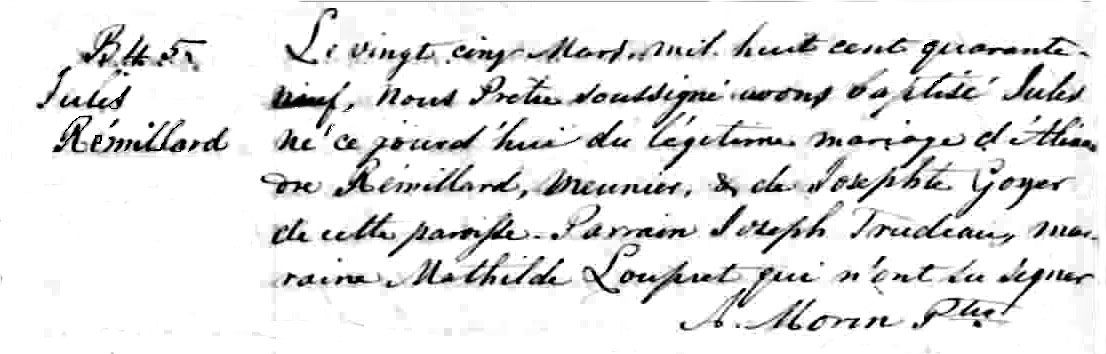 B.tt 57.
Jules
Rémillard
Le vingt cinq Mars, mil huit cent quarante-
neuf, nous Prêtre soussigné avons baptisé Jules
né ce jourd'hui du légitime mariage d'
dre Rémillard, meunier, & de Josephte Goyer
de cette paroisse. Parrain Joseph Trudeau, mar-
raine Mathilde Loupret qui n'ont su signer
A. Morin Ptre